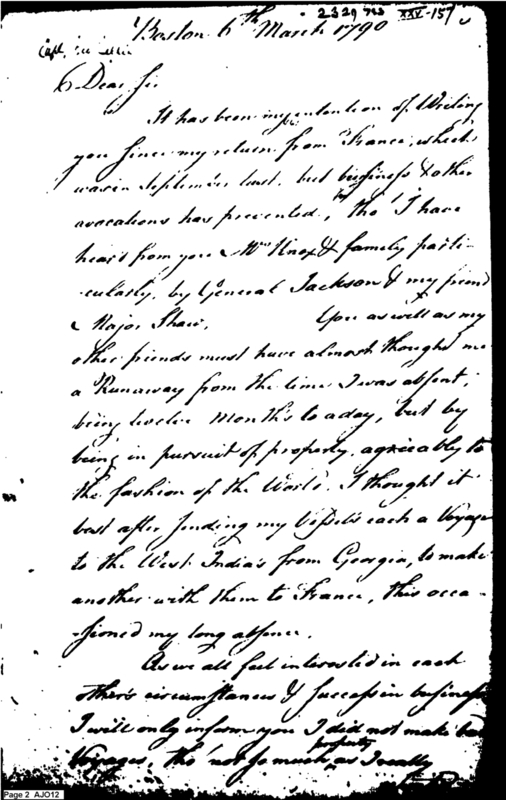 2329 783 XXV-157
Boston 6th March 1790
Capt.
Dear Sir
It has been my intention of Writing
you since my return from France, which
was in September last, but business & other
avocations has prevented, tho' I have
heard from you Mrs Knox & family parti-
-cularly, by General Jackson & my friend
Major Shaw. You as well as my
other friends must have almost thought me
a Runaway from the time I was absent,
being twelve months to a day, but by
being in pursuit of property, agreeably to
the fashion of the World. I thought it
best after sending my Vessels each a Voyage
to the West India's from Georgia, to make
another with them to France, this occa-
-sioned my long absence.
As we all feel interested in each
other's circumstances & success in business
I will only inform you I did not make bad
Voyages, tho' not so much property as I really
Page 2 AJO12